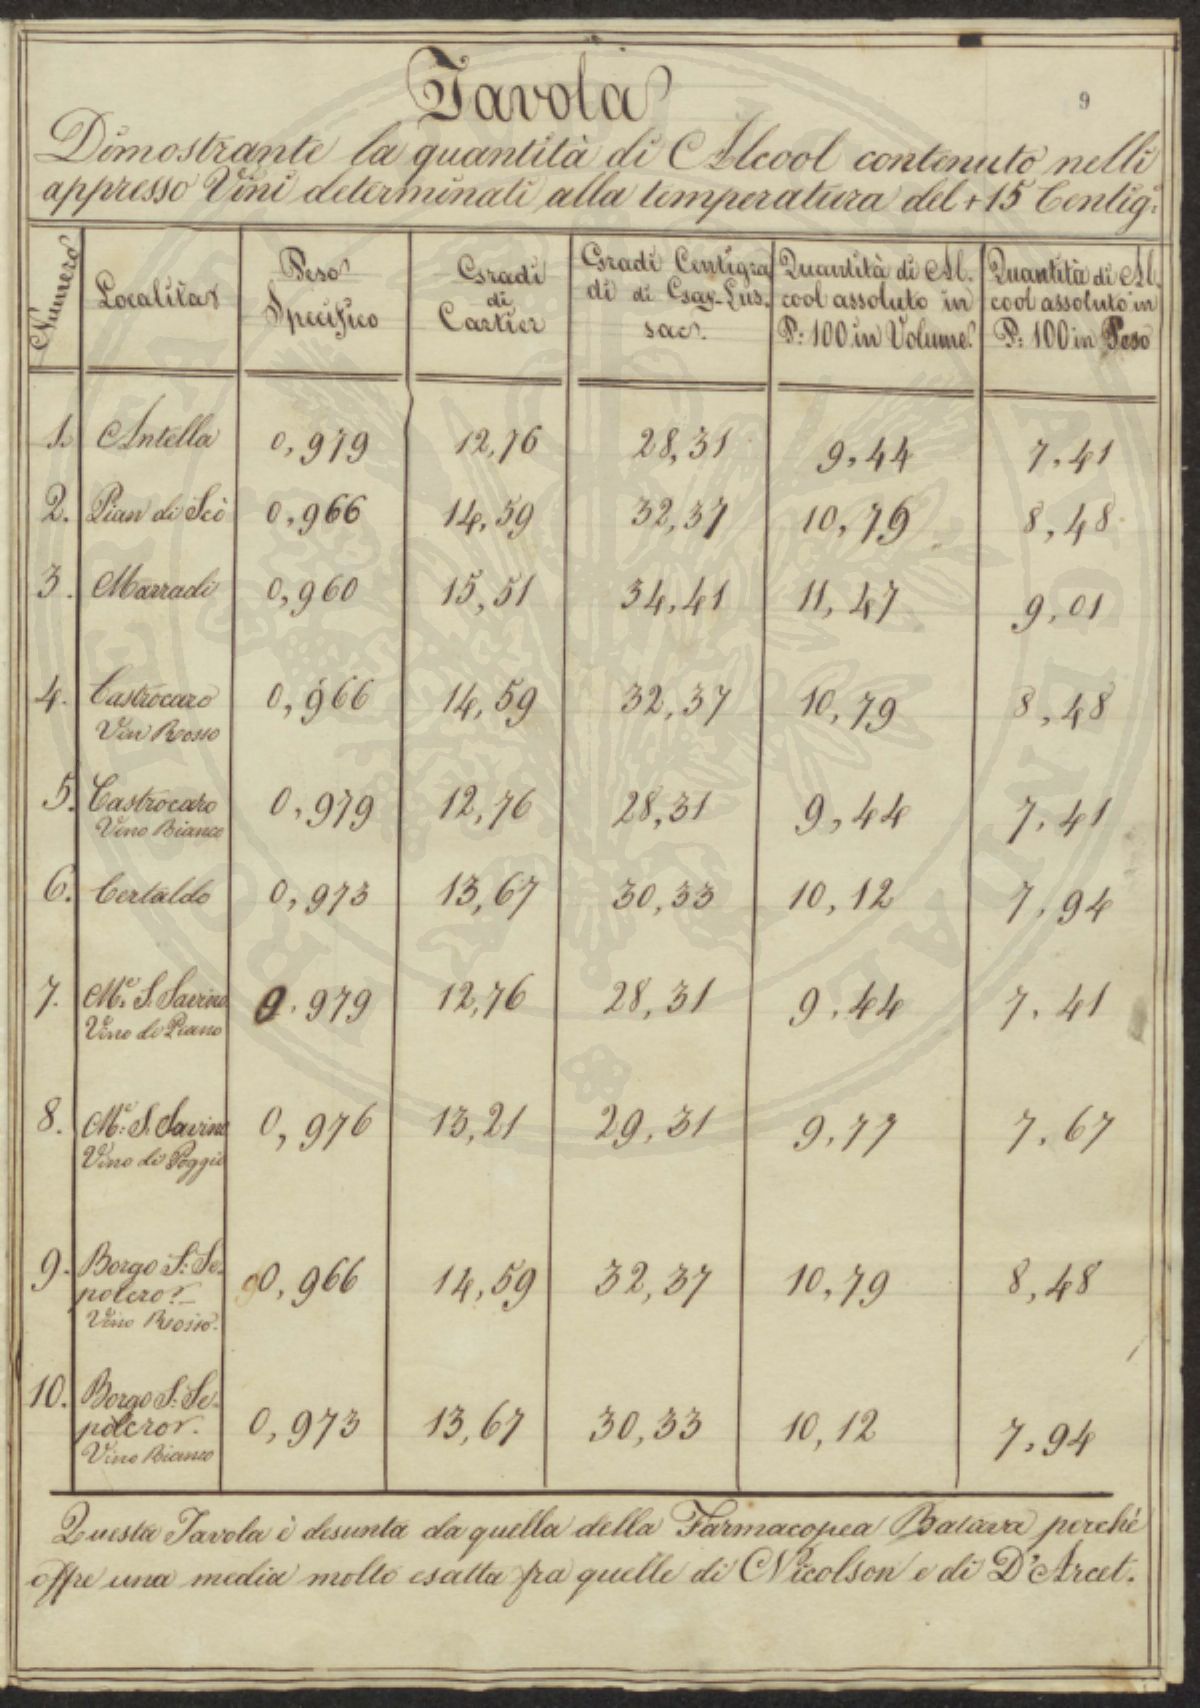 9
Tavola
Dimostrante la quantità di Alcool contenuto nelli
appresso Vini determinati alla temperatura del +15 Centig:
Numero
Località
Peso
Specifico
Gradi
di
Cartier
Gradi Centigra
di di Gay-Lus.
sac.
Quantità di Al.
cool assoluto in
P: 100 in Volume
Quantità di Al.
cool assoluto in
P: 100 in Peso
1. Antella 0,979 12,76 28,31 9,44 7,41
2. Pian di Scò 0,966 14,59 32,37 10,79 8,48
3. Marradi 0,960 15,51 34,41 11,47 9,01
4. Castrocaro 0,966 14,59 32,37 10,79 8,48
Vin Rosso
5. Castrocaro 0,979 12,76 28,31 9,44 7,41
Vino Bianco
6. Certaldo 0,973 13,67 30,33 10,12 7,94
7. Mte. S. Savino 0.979 12,76 28,31 9,44 7,41
Vino di Piano
8. Mte. S. Savino 0,976 13,21 29,31 9,77 7,67
Vino di Poggio
9. Borgo S: Se- 0,966 14,59 32,37 10,79 8,48
polcro
Vino Rosso.
10. Borgo S: Se- 0,973 13,67 30,33 10,12 7,94
polcro
Vino Bianco
Questa Tavola è desunta da quella della Farmacopea Batava perchè
offre una media molto esatta fra quelle di Nicolson e di D'Arcet.